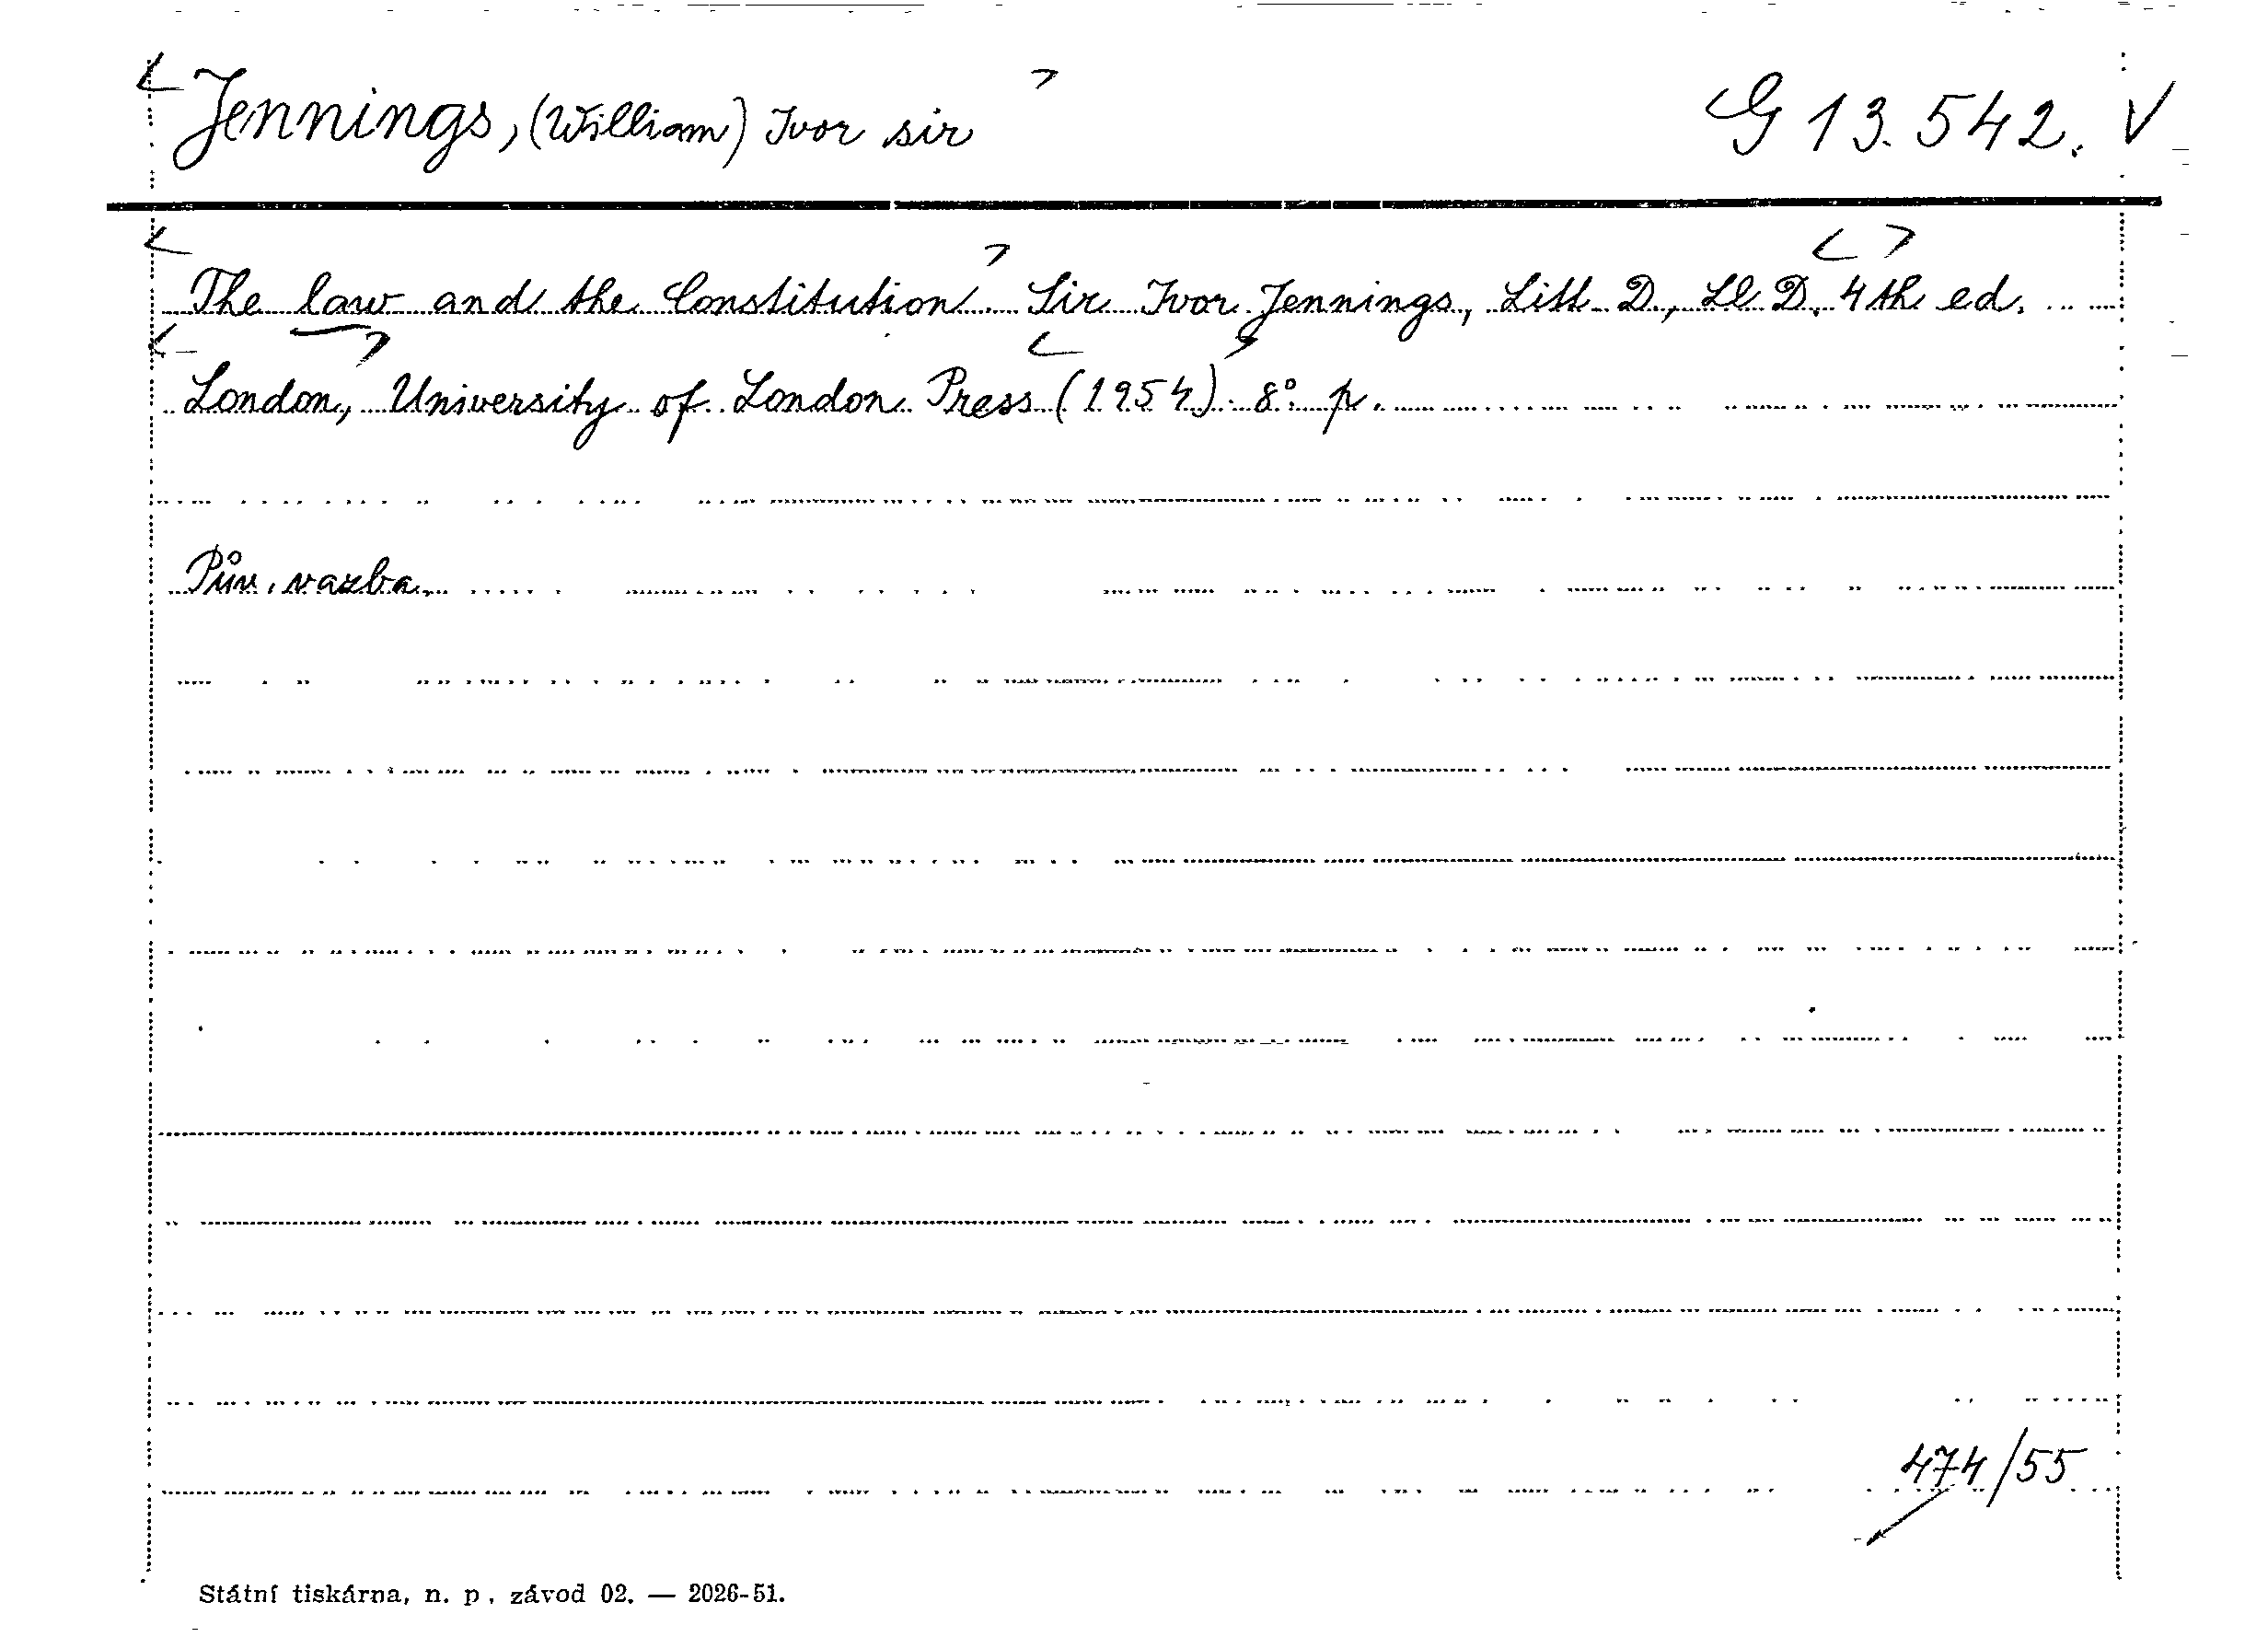 Jennings, (William) Ivor sir G 13.542. V
The law and the Constitution. Sir Ivor Jennings, Litt. D., Ll. D. 4th ed.
London, University of London Press (1954). 8° p.
Pův. vazba.
474/55
Státní tiskárna, n. p., závod 02. — 2026-51.